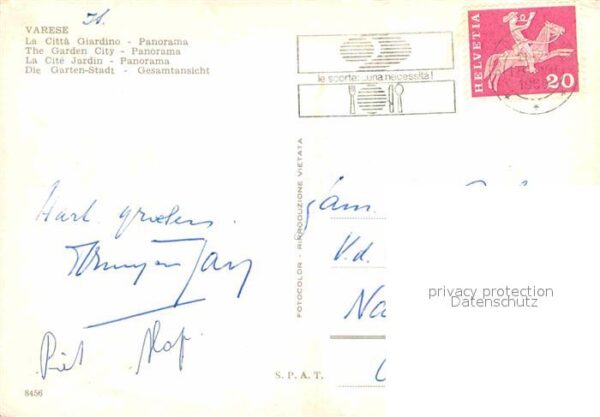 It.
VARESE
La Città Giardino - Panorama
The Garden City - Panorama
La Cité Jardin - Panorama
Die Garten-Stadt - Gesamtansicht
le scorte: ...una necessità!
HELVETIA
20
FOTOCOLOR - RIPRODUZIONE VIETATA
Hart. groeten.
Fam.
V.d.
Na
privacy protection
Datenschutz
Piet
S. P. A. T.
8456